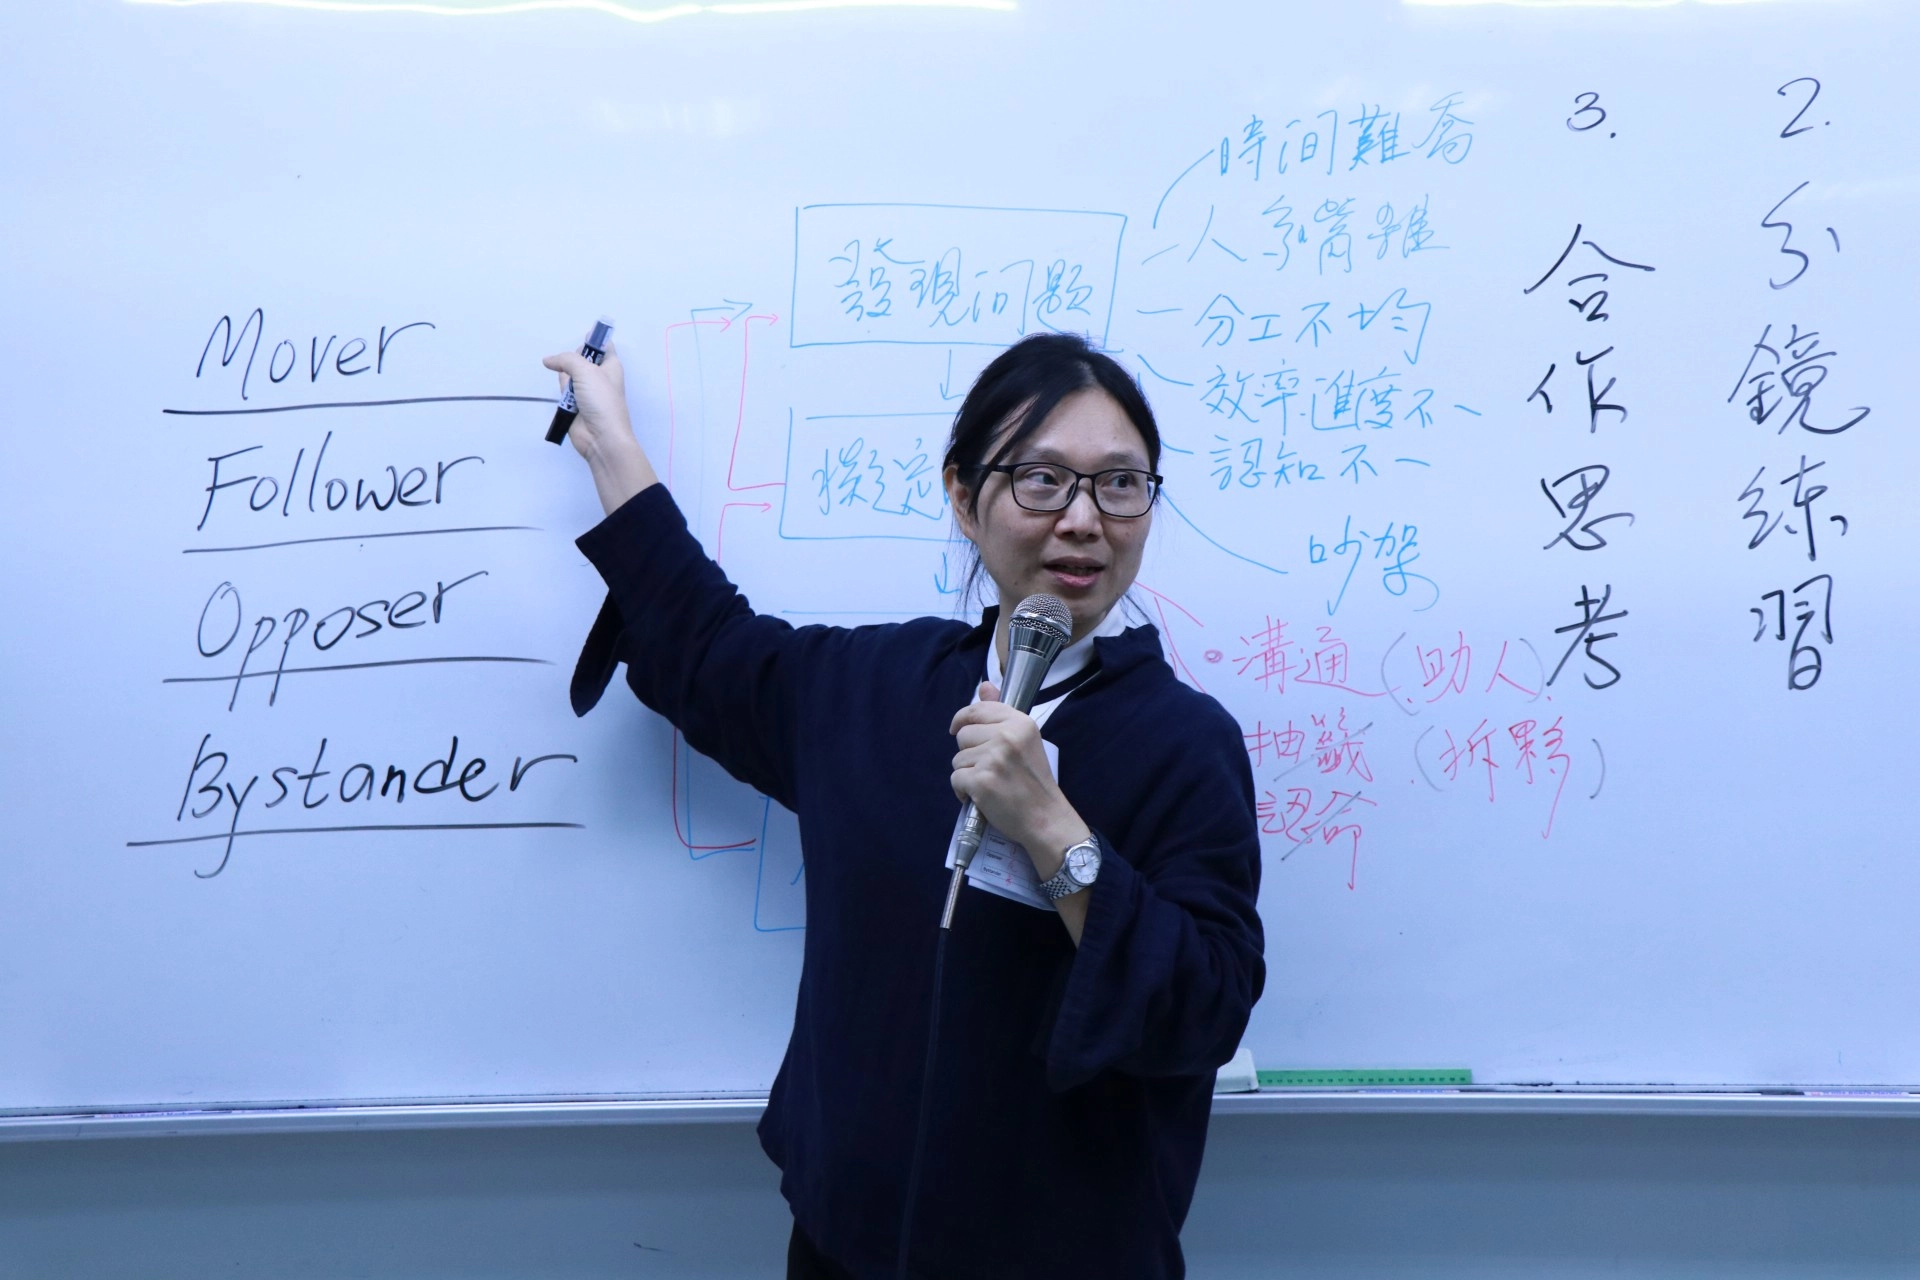 Mover
Follower
Opposer
Bystander
發現问题
擬定
時间難喬
人多嘴雜
分工不均
效率.進度不一
認知不一
吵架
溝通(助人)
抽籤(拆夥)
認命
2.分鏡練習
3.合作思考